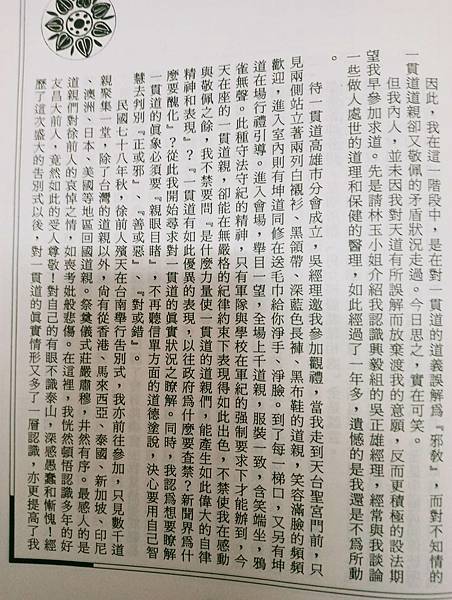 因此，我在這一階段中，是在對一貫道的道義誤解為『邪教』，而對不知情的
一貫道道親卻又敬佩的矛盾狀況走過。今日思之，實在可笑。
但我內人，並未因我對天道有所誤解而放棄渡我的意願，反而更積極的設法期
望我早參加求道。先是請林玉小姐介紹我認識興毅組的吳正雄經理，經常與我談論
一些做人處世的道理和保健的醫理，如此經過了一年多，遺憾的是我還是不為所動
。
待一貫道高雄市分會成立，吳經理邀我參加觀禮，當我走到天台聖宮門前，只
見兩側站立著兩列白襯衫、黑領帶、深藍色長褲、黑布鞋的道親，笑容滿臉的頻頻
歡迎，進入室內則有坤道同修在送毛巾給你淨手、淨臉。到了每一梯口，又另有坤
道在場行禮引導。進入會場，舉目一望，全場上千道親，服裝一致，含笑端坐，鴉
雀無聲。此種守法守紀的精神，只有軍隊與學校在軍紀的強制要求下才能辦到，今
天在座的一貫道親，卻能在無嚴格的紀律約束下表現得如此出色，不禁使我在感動
與敬佩之餘，我不禁要問『是什麼力量使一貫道的道親們，能產生如此偉大的自律
精神和表現』？『一貫道有如此優異的表現，以往政府為什麼要查禁？新聞界為什
麼要醜化』？從此我開始尋求對一貫道的真實狀況之瞭解。同時，我認為想要瞭解
一貫道的真象必須要『親眼目睹』，不再聽信單方面的道德塗說，決心要用自己智
慧去判別『正或邪』、『善或惡』、『對或錯』。
民國七十八年秋，徐前人殯天在台南舉行告別式，我亦前往參加，只見數千道
親聚集一堂，除了台灣的道親以外，尚有從香港、馬來西亞、泰國、新加坡、印尼
、澳洲、日本、美國等地區回國道親。祭奠儀式莊嚴肅穆，井然有序。最感人的是
道親們對徐前人的哀悼之情，如喪考妣般悲傷。在這裡，我恍然頓悟認識多年的好
友昌大前人，竟然如此的受人尊敬！對自己的有眼不識泰山，深感愚蠢和慚愧！經
歷了這次盛大的告別式以後，對一貫道的真實情形又多了一層認識，亦更提高了我